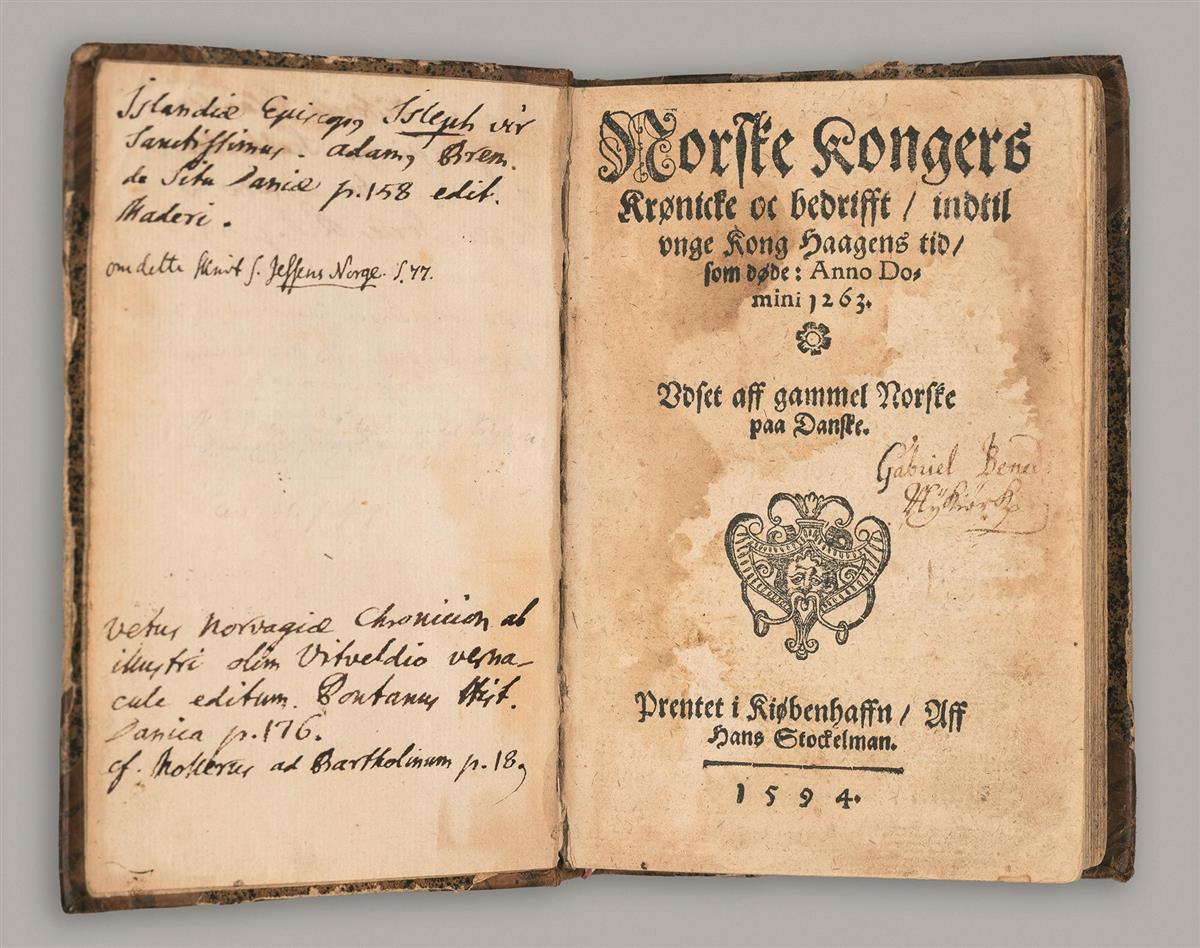 Islandiæ Episcopꝯ Isleph vir
Sanctissimus. Adamꝯ Brem.
de Situ Daniæ p.158 edit.
Maderi.
om dette Skrivt s. Jessens Norge. S.77.
Vetus Norvagiæ Chronicion ab
illustri olim Vitveldio verna-
cule editum. Pontanus Hist.
Danica p.176.
cf. Mollerus ad Bartholinum p.18,
Norske Kongers
Krønicke oc bedrifft / indtil
vnge Kong Haagens tid /
som døde: Anno Do-
mini 1263.
Vdset aff gammel Norske
paa Danske.
Gabriel
Prentet i Kiøbenhaffn / Aff
Hans Stockelman.
1594.